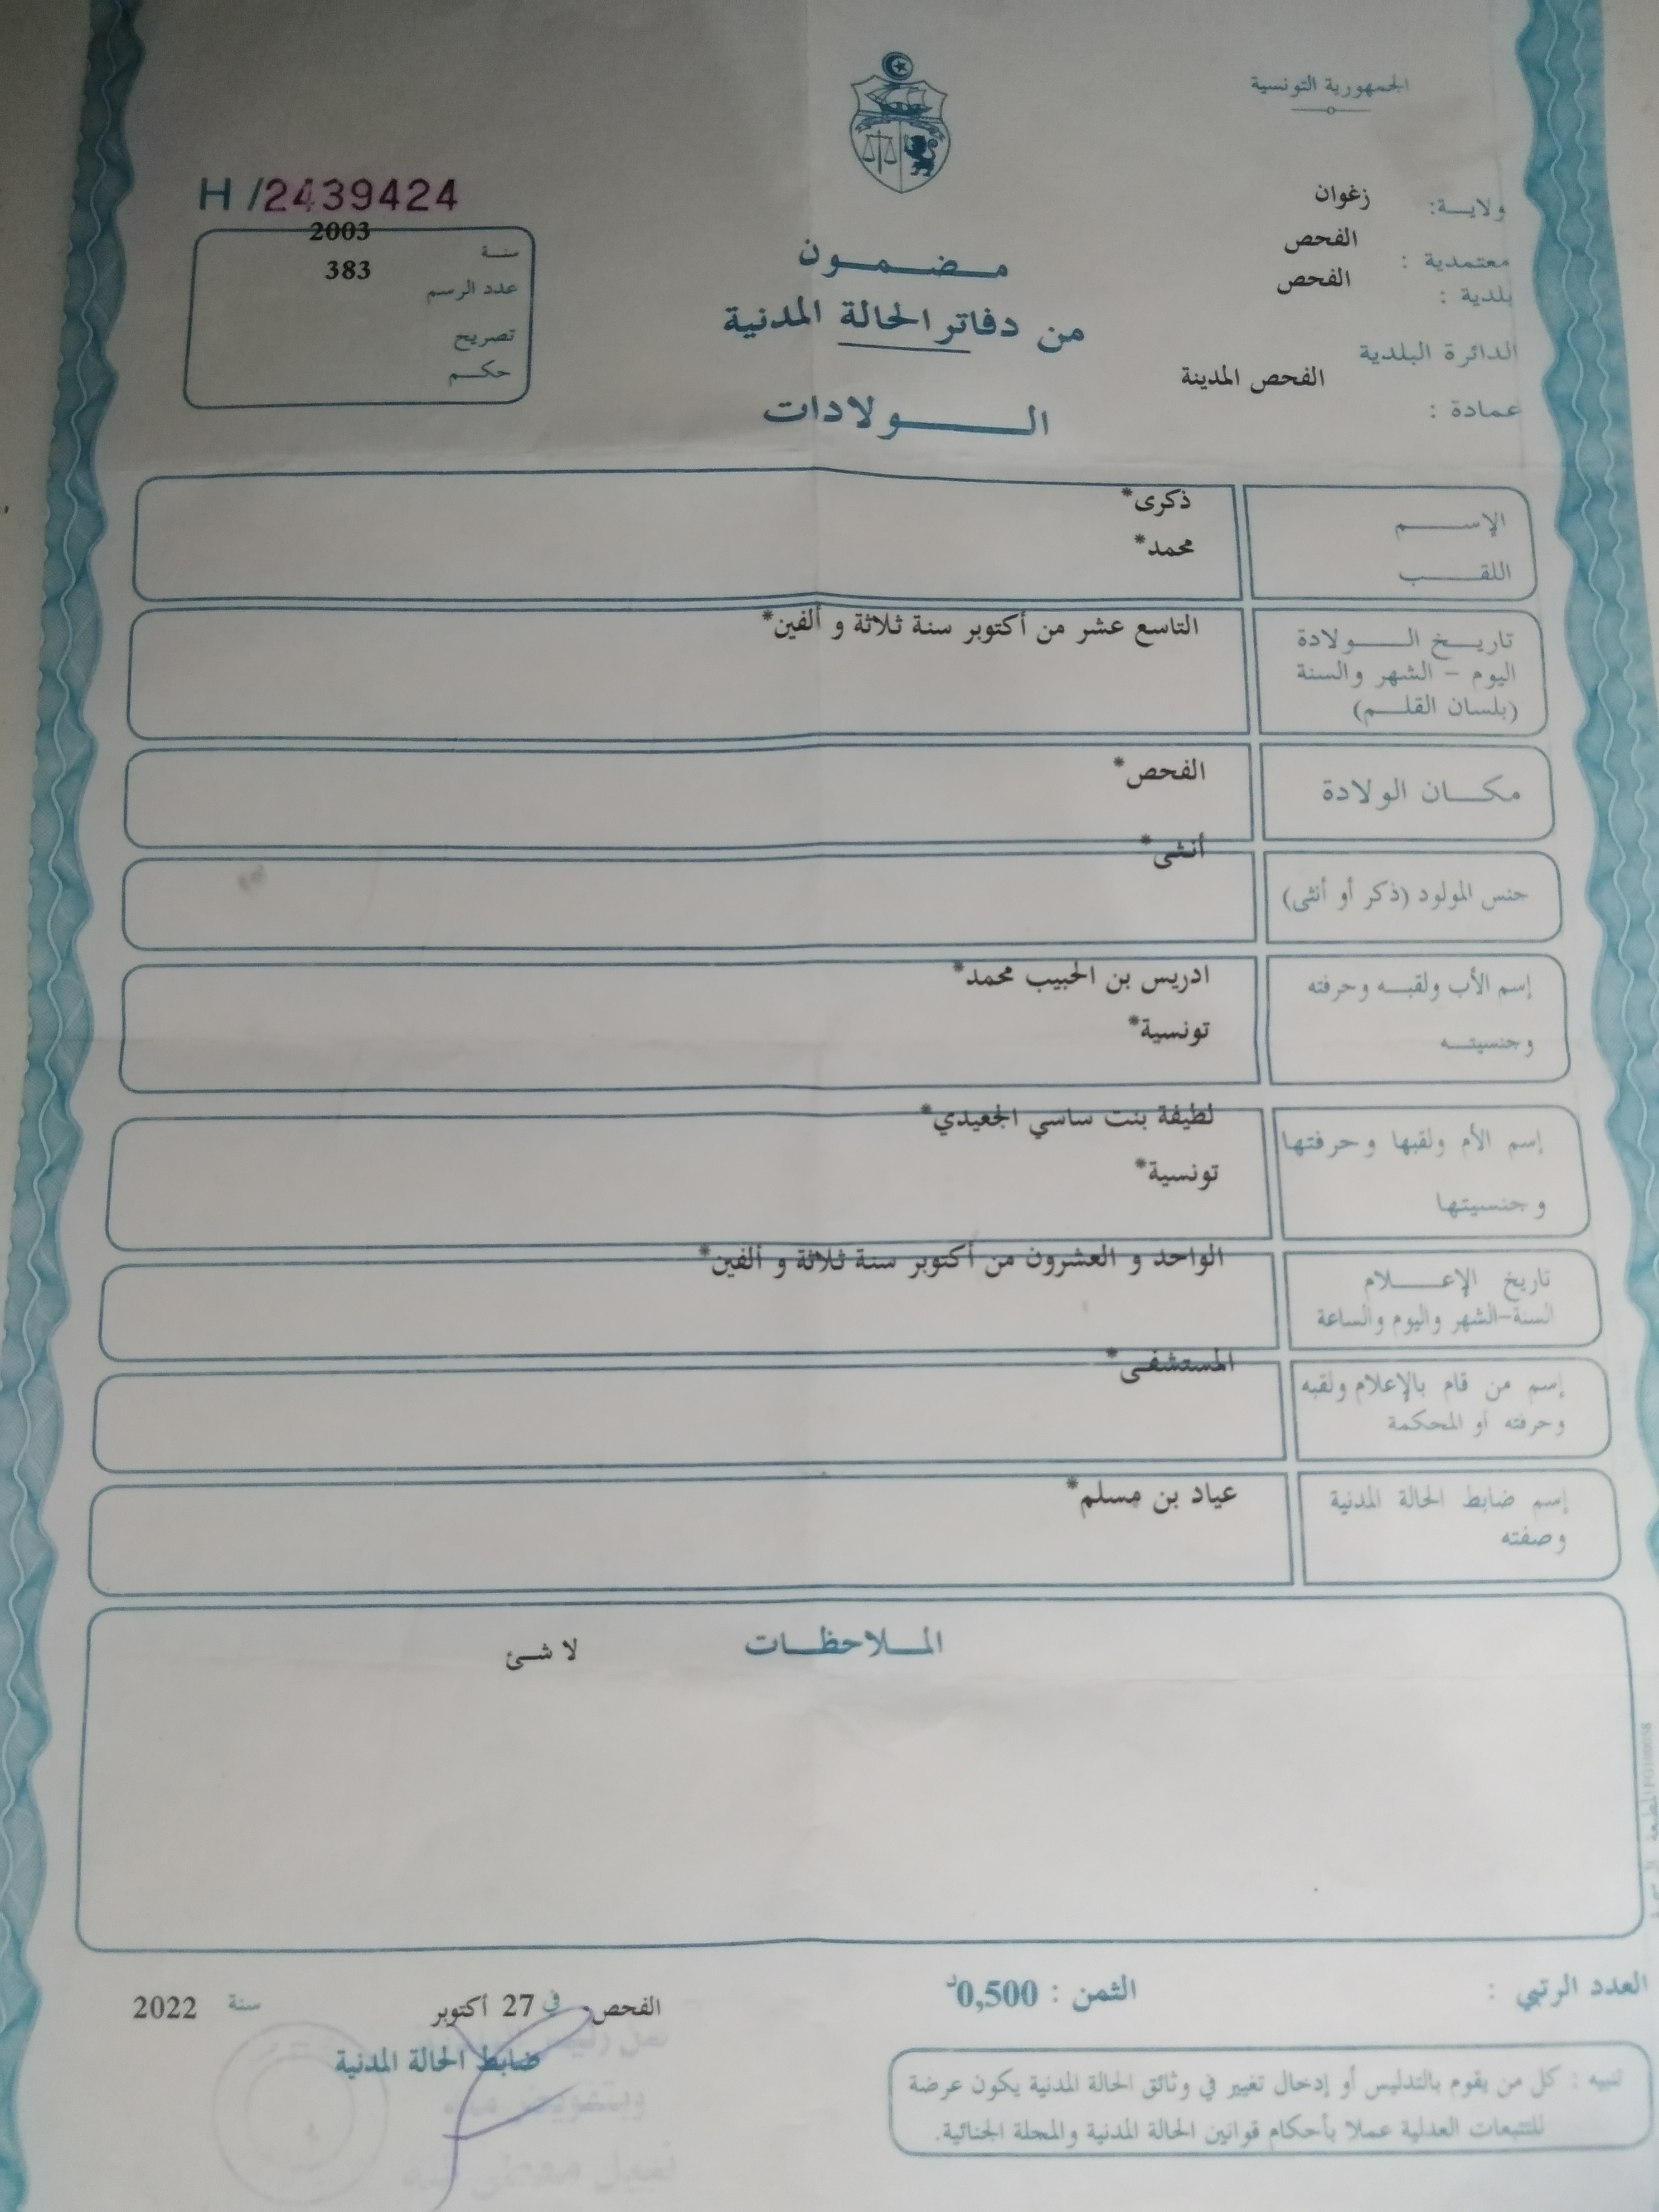 الجمهورية التونسية
ولايــة: زغوان
معتمدية : الفحص
بلدية : الفحص
الدائرة البلدية
الفحص المدينة
عمادة :
H /2439424
سنـة 2003
عدد الرسم 383
تصريح
حكـم
مـضـمـون
من دفاتر الحالة المدنية
الـولادات
الإســـم ذكرى*
اللقـــب محمد*
تاريـخ الــولادة التاسع عشر من أكتوبر سنة ثلاثة و ألفين*
اليوم - الشهر والسنة
(بلسان القلـم)
مكـان الولادة الفحص*
جنس المولود (ذكر أو أنثى) أنثى*
إسم الأب ولقبـه وحرفته ادريس بن الحبيب محمد*
وجنسيتـه تونسية*
إسم الأم ولقبها وحرفتها لطيفة بنت ساسي الجعيدي*
وجنسيتها تونسية*
تاريخ الإعــلام الواحد و العشرون من أكتوبر سنة ثلاثة و ألفين*
السنة-الشهر واليوم والساعة
إسم من قام بالإعلام ولقبه المستشفى*
وحرفته أو المحكمة
إسم ضابط الحالة المدنية عياد بن مسلم*
وصفته
المـلاحظـات لا شئ
العدد الرتبي :
الثمن : 0,500د
الفحص في 27 أكتوبر سنة 2022
ضابط الحالة المدنية
تنبيه : كل من يقوم بالتدليس أو إدخال تغيير في وثائق الحالة المدنية يكون عرضة
للتتبعات العدلية عملا بأحكام قوانين الحالة المدنية والمجلة الجنائية.